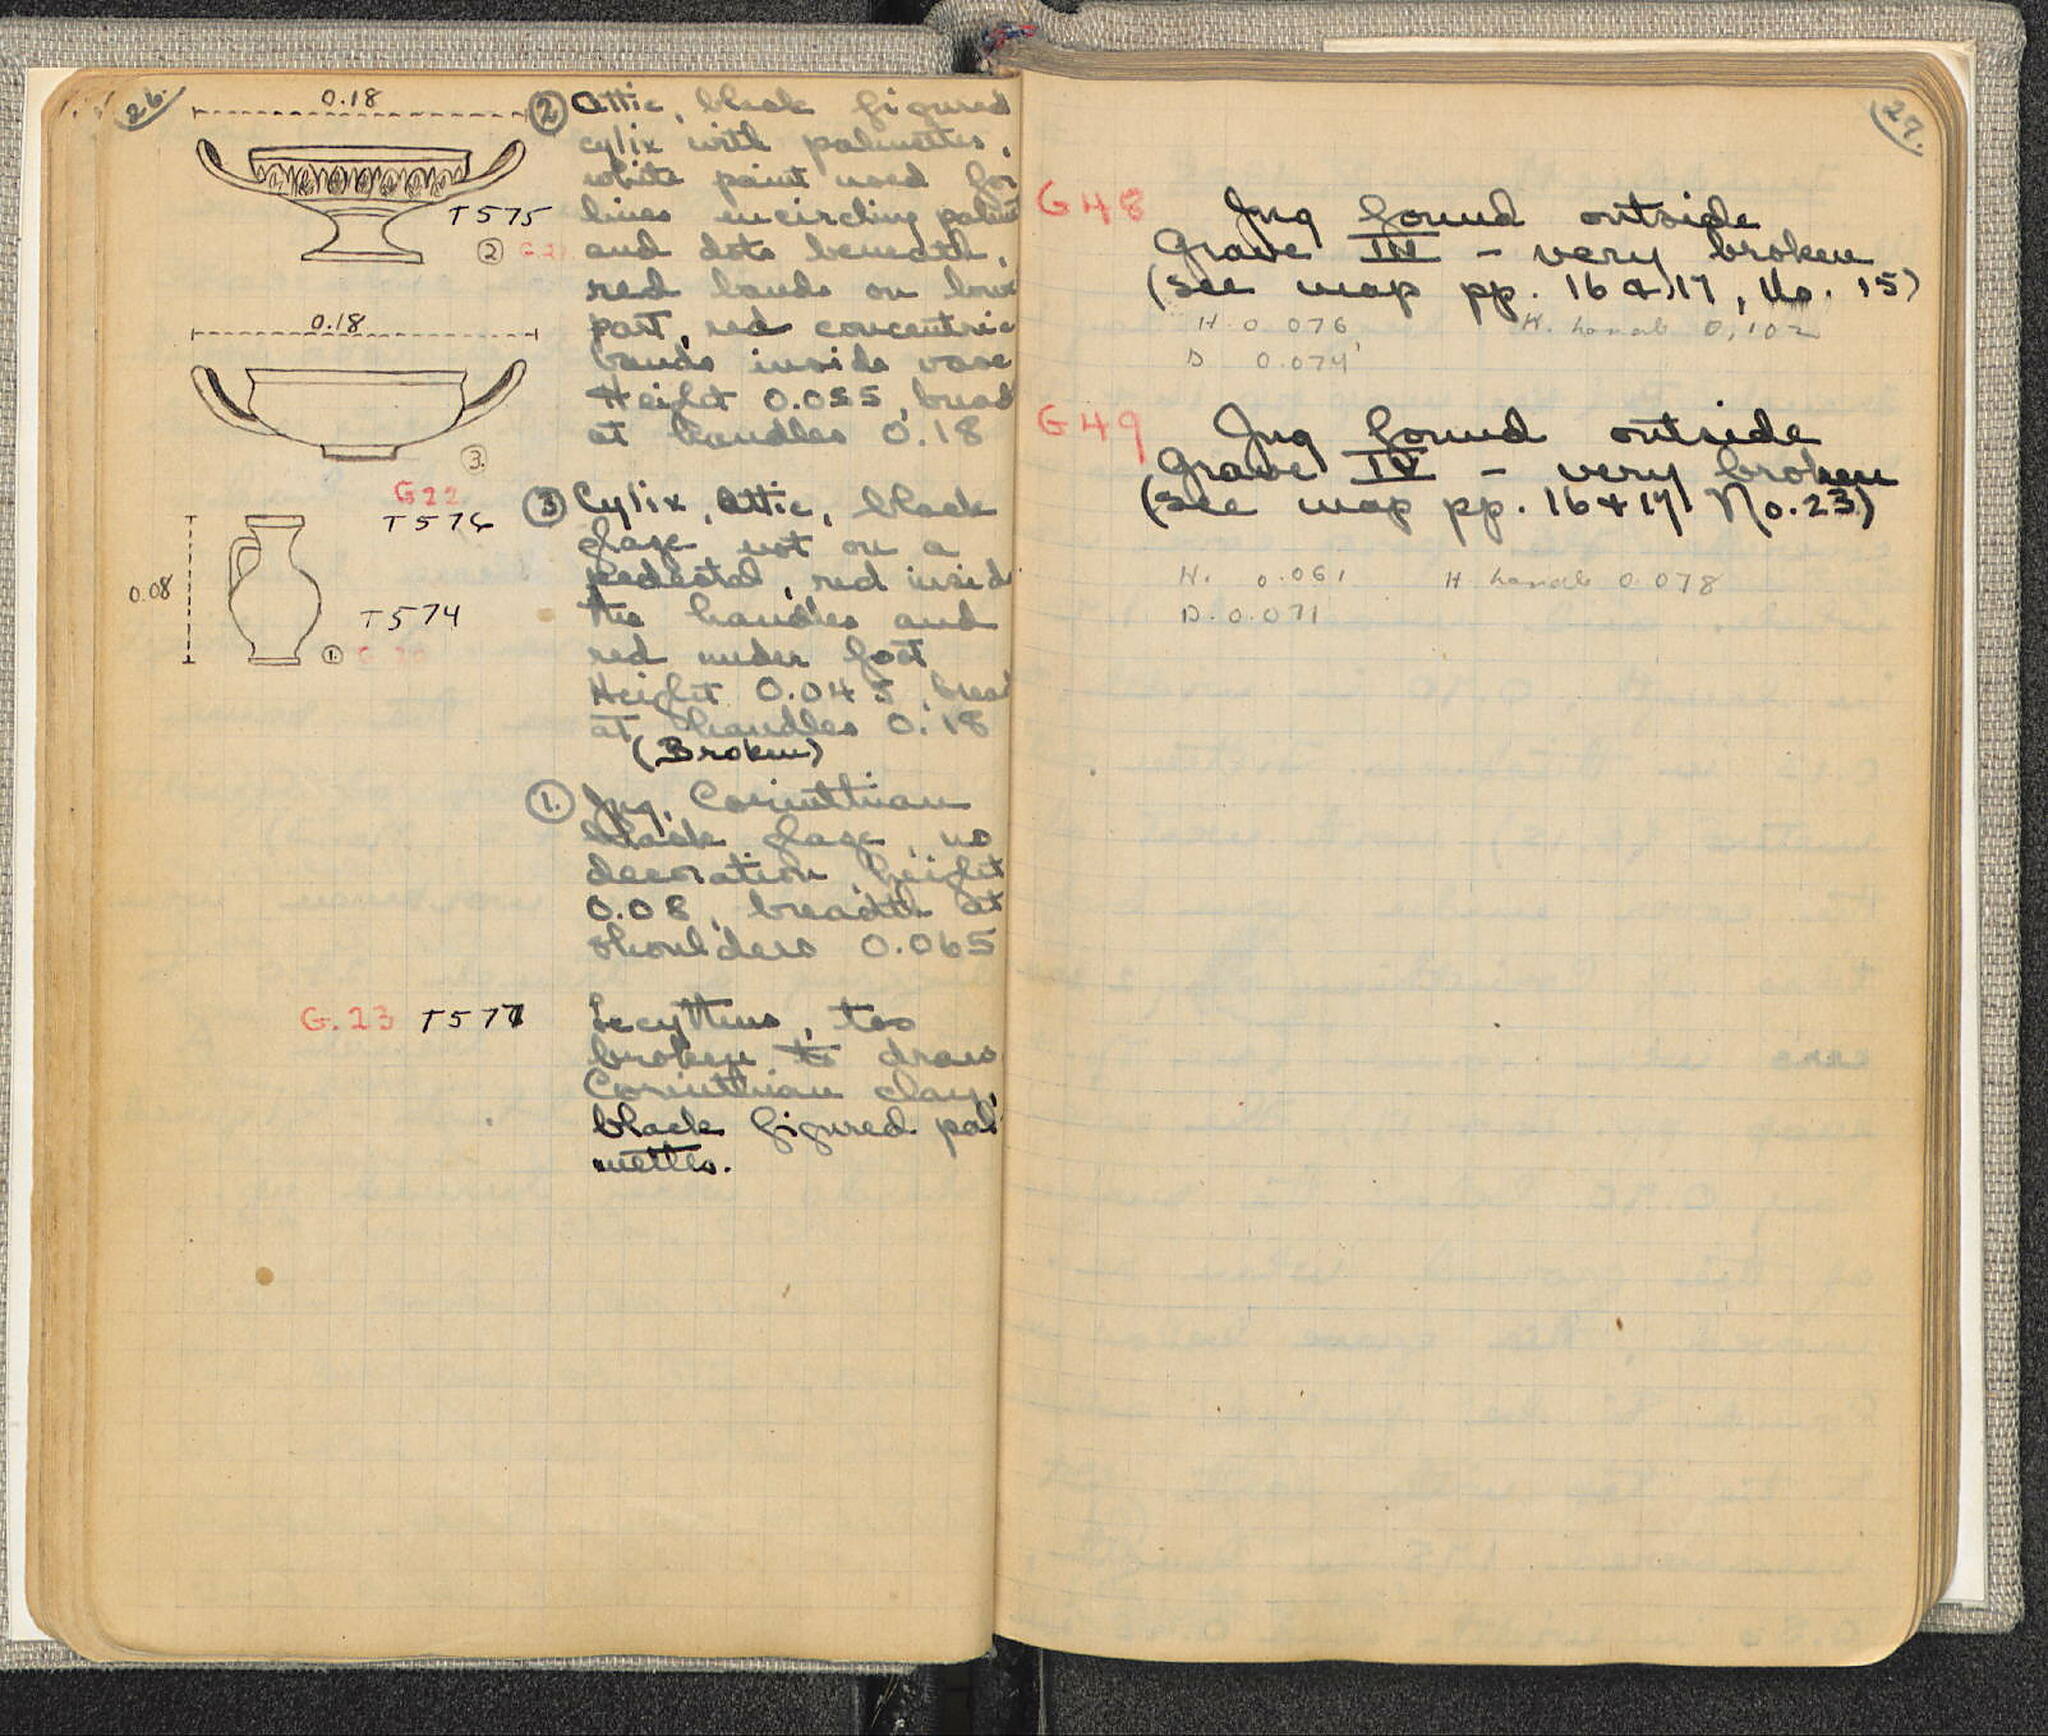 26.
0.18
T 575
②
0.18
③.
G 22
T 576
0.08
T 574
①. G 20
② Attic, black figured
cylix with palmettes,
white paint used for
lines encircling palmet
and dots beneath,
red bands on lower
part, red concentric
bands inside vase
Height 0.055, bread
at handles 0.18
③ Cylix, Attic, black
glaze, not on a
pedestal, red inside
the handles and
red under foot
Height 0.045, bread
at handles 0.18
(Broken)
①. Jug, Corinthian
black glaze, no
decoration, height
0.08, breadth at
shoulders 0.065
G. 23 T 577
Lecythus, too
broken to draw
Corinthian clay,
black figured pal
mettes.
27.
G 48 Jug found outside
Grave IV - very broken
(see map pp. 16 & 17, No. 15)
H. 0.076 H. handle 0.102
D 0.074
G 49 Jug found outside
Grave IV - very broken
(see map pp. 16 & 17 No. 23)
H. 0.061 H handle 0.078
D. 0.071